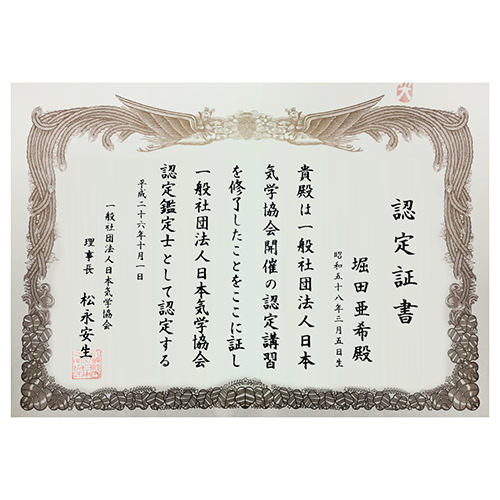 認定証書
堀田亜希殿
昭和五十八年三月五日生
貴殿は一般社団法人日本
気学協会開催の認定講習
を修了したことをここに証し
一般社団法人日本気学協会
認定鑑定士として認定する
平成二十六年十月一日
一般社団法人日本気学協会
理事長 松永安生